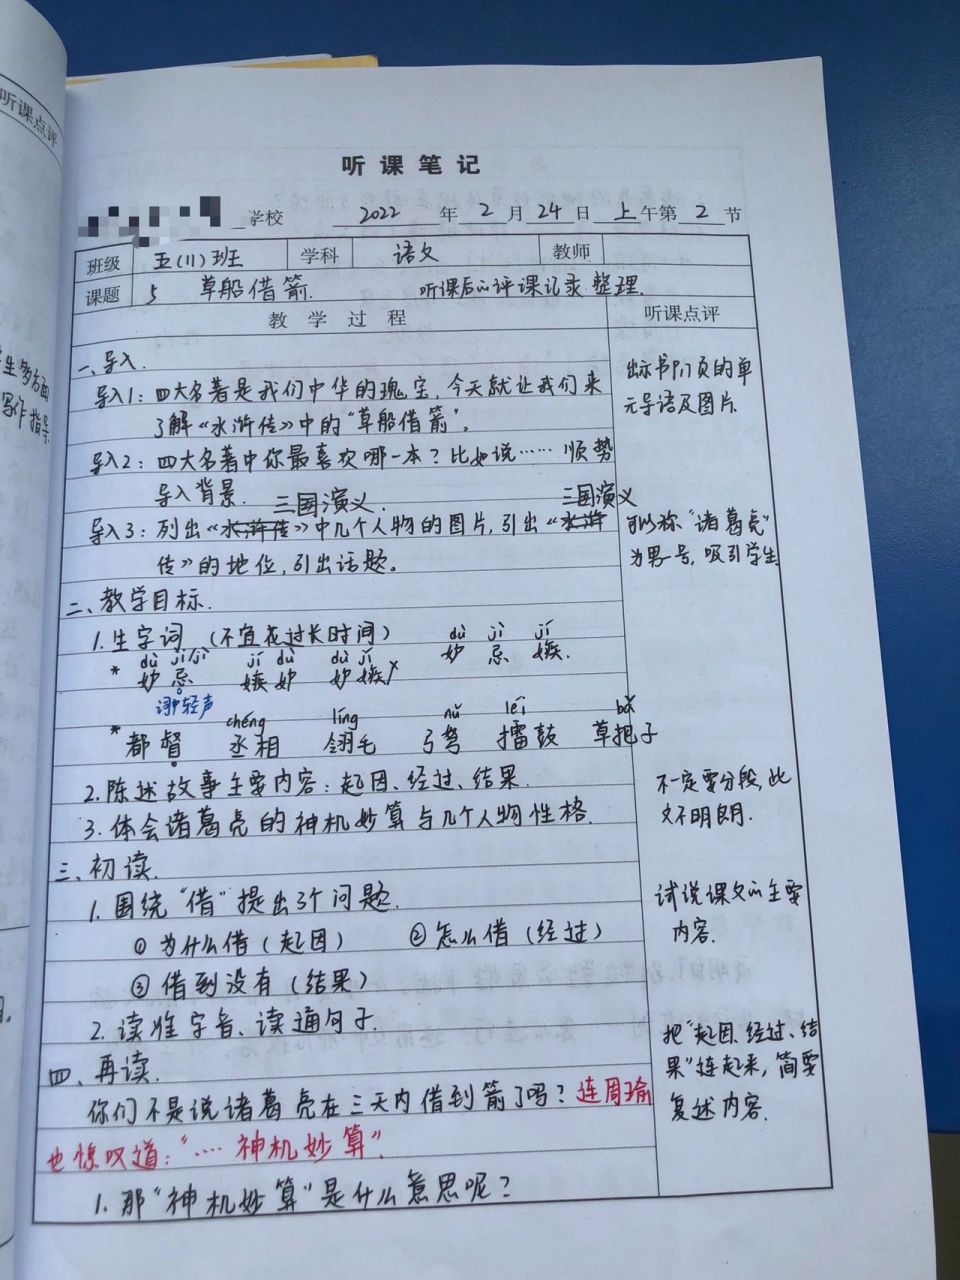 听课点评
生多方面
写作指导
听课笔记
学校 2022 年 2 月 24 日 上 午第 2 节
班级 五(11)班 学科 语文 教师
课题 5 草船借箭. 听课后的评课记录整理.
教学过程 听课点评
一、导入.
导入1：四大名著是我们中华的瑰宝，今天就让我们来
了解《水浒传》中的“草船借箭”。
导入2：四大名著中你最喜欢哪一本？比如说…… 顺势
导入背景.
三国演义. 三国演义
导入3：列出《水浒传》中几个人物的图片，引出《水浒
传》的地位，引出话题。
出示书P17页的单
元导语及图片.
可以称“诸葛亮”
为男一号，吸引学生.
二、教学目标.
1.生字词 (不宜花过长时间)
dù jì jí
妒 忌 嫉.
dù jì jí dù dù jí
* 妒忌 嫉妒 妒嫉 ×
词中轻声
chéng líng nǔ léi bǎ
* 都督 丞相 翎毛 弓弩 擂鼓 草把子
2.陈述故事主要内容：起因、经过、结果.
3.体会诸葛亮的神机妙算与几个人物性格.
不一定要分段，此
文不明朗.
三、初读.
1.围绕“借”提出3个问题.
①为什么借(起因) ②怎么借(经过)
③借到没有(结果)
2.读准字音、读通句子.
试说课文的主要
内容.
四、再读.
你们不是说诸葛亮在三天内借到箭了吗？连周瑜
也惊叹道：“…. 神机妙算”.
1.那“神机妙算”是什么意思呢？
把“起因、经过、结
果”连起来，简要
复述内容.